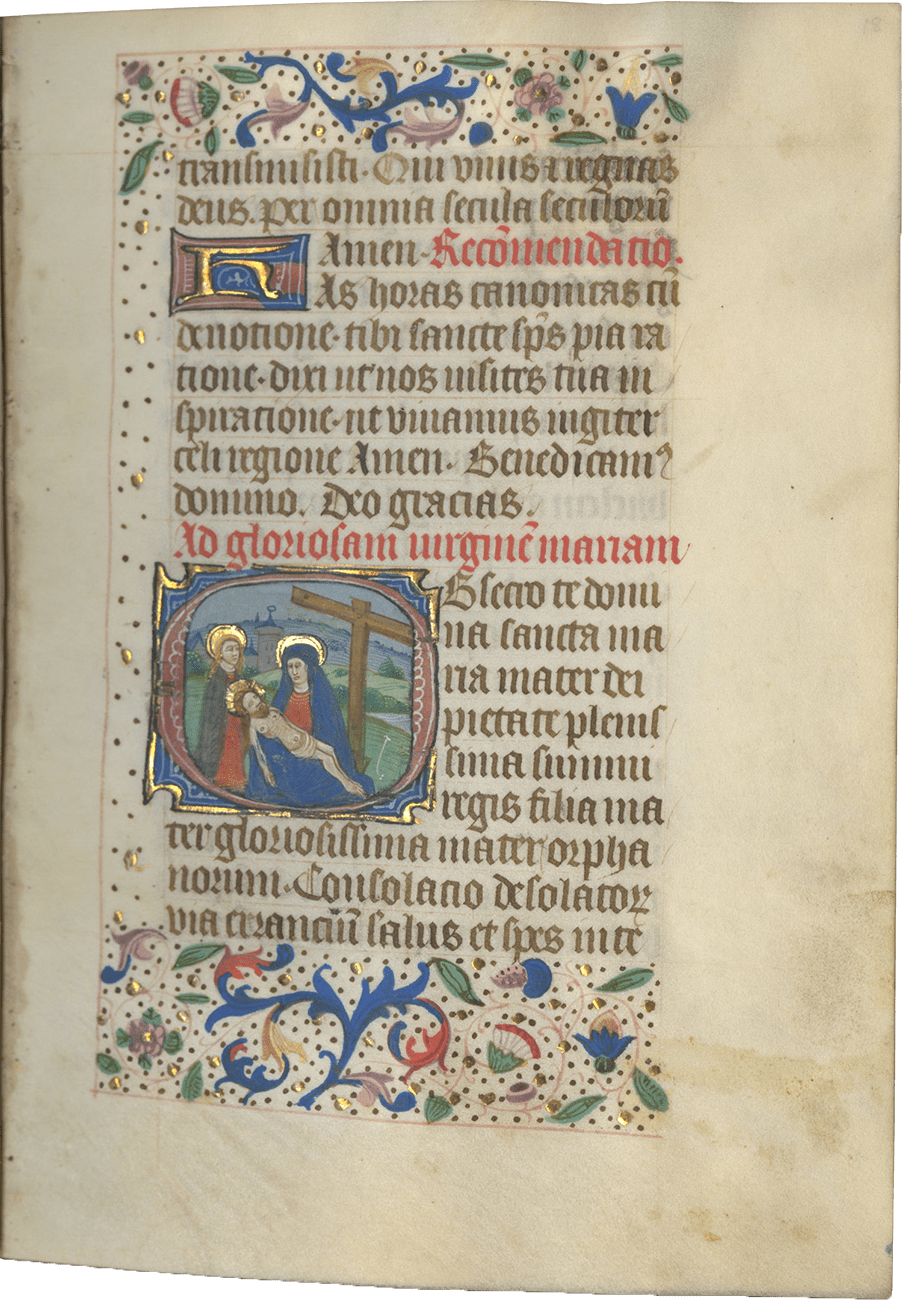 18
transmisisti. Qui viuis et regnas
deus. per omnia secula seculorū
Amen. Recōmendatio.
HAs horas canonicas cū
deuotione. tibi sancte sp̄s pia ra
tione. dixi ut nos uisites tua in
spiratione. ut viuamus iugiter
celi regione Amen. Benedicam⁹
domino. Deo gracias.
Ad gloriosam uirginē mariam
OBsecro te domi
na sancta ma
ria mater dei
pietate plenis
sima summi
regis filia ma
ter gloriosissima mater orpha
norum. Consolacio desolatoꝝ
via erranciū salus et spes in te